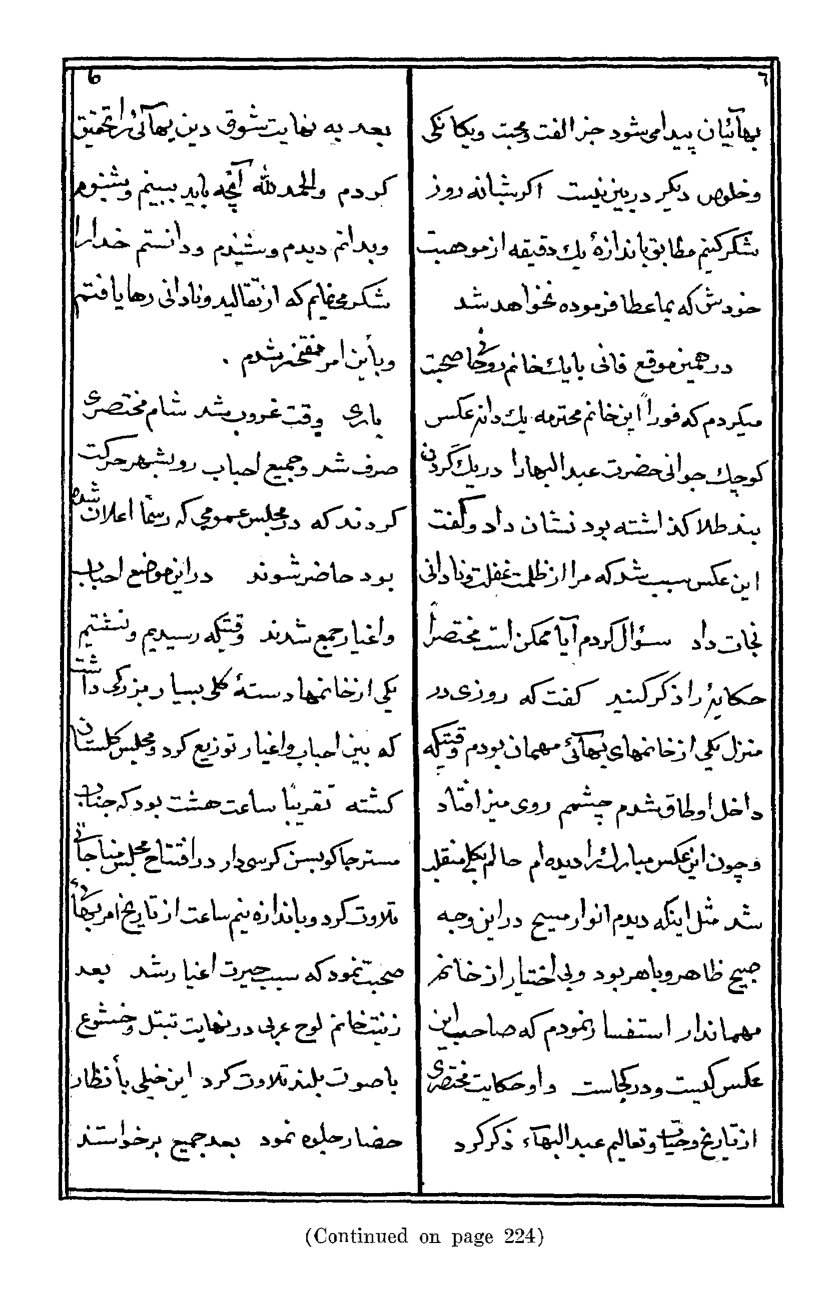 ٦
بهائیان پیدا میشود جز الفت و محبت و یکانکی
وخلوص دیکر دربین نیست اکر شبانه روز
شکر کنیم مطابق باندازۀ یك دقیقه از موهبت
خودش که بما عطا فرموده نخواهد شد
درهمین موقع فانی بایك خانم روحانی صحبت
میکردم که فوراً این خانم محترمه یك دانه عکس
کوچك جوانی حضرت عبدالبهارا دریك کردن
بند طلا کذاشته بود نشان داد وکفت
این عکس سبب شد که مرا از ظلمت غفلت ونادانی
نجات داد سؤال کردم آیا ممکن است مختصراً
حکایۀ را ذکر کنید کفت که روزی در
منزل یکی از خانمهای بهائی مهمان بودم وقتیکه
داخل اوطاق شدم چشمم روی میز افتاد
وچون این عکس مبارك را دیده ام حالم بکلی منقلب
شد مثل اینکه دیدم انوار مسیح دراین وجه
صبیح ظاهر وباهر بود وبی اختیار از خانم
مهماندار استفسار نمودم که صاحب این
عکس کیست ودرکجاست واو حکایت مختصری
از تاریخ وحیات وتعالیم عبدالبهآء ذکر کرد
٦
بعد به نهایت شوق دین بهائی را تحقیق
کردم والحمد لله آنچه باید ببینم وبشنوم
وبدانم دیدم وشنیدم ودانستم خدارا
شکر مینمایم که از تقالید ونادانی رها یافتم
وبأین امر مفتخر شدم .
باری وقت غروب شد شام مختصری
صرف شد وجمیع احباب رو بشهر حرکت
کردند که در مجلس عمومی که رسمًا اعلان شده
بود حاضر شوند دراین موضع احباب
واغیار جمع شدند وقتیکه رسیدیم ونشستیم
یکی از خانمها دستۀ کلی بسیار بزرکی داشت
که بین احباب واغیار توزیع کرد ومجلس کلستان
کشته تقریبًا ساعت هشت بود که جناب
مستر جاکوبسن کرسی دار در افتتاح مجلس مناجاتی
تلاوت کرد وباندازه نیم ساعت از تاریخ امر بهاء
صحبت نمود که سبب حیرت اغیار شد بعد
زینت خانم لوح عربی در نهایت تبتل وخشوع
باصوت بلند تلاوت کرد این خیلی بأنظار
حضار جلوه نمود بعد جمیع برخواستند
(Continued on page 224)